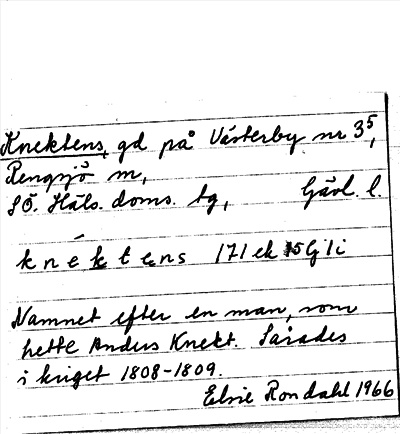 Knektens, gd på Västerby nr 3⁵,
Rengsjö sn,
SÖ. Häls. doms. tg, Gävl. l.
k n é k t e n s 171 ek 15G 1i
Namnet efter en man, som
hette Anders Knekt. Sårades
i kriget 1808-1809.
Elsie Rondahl 1966